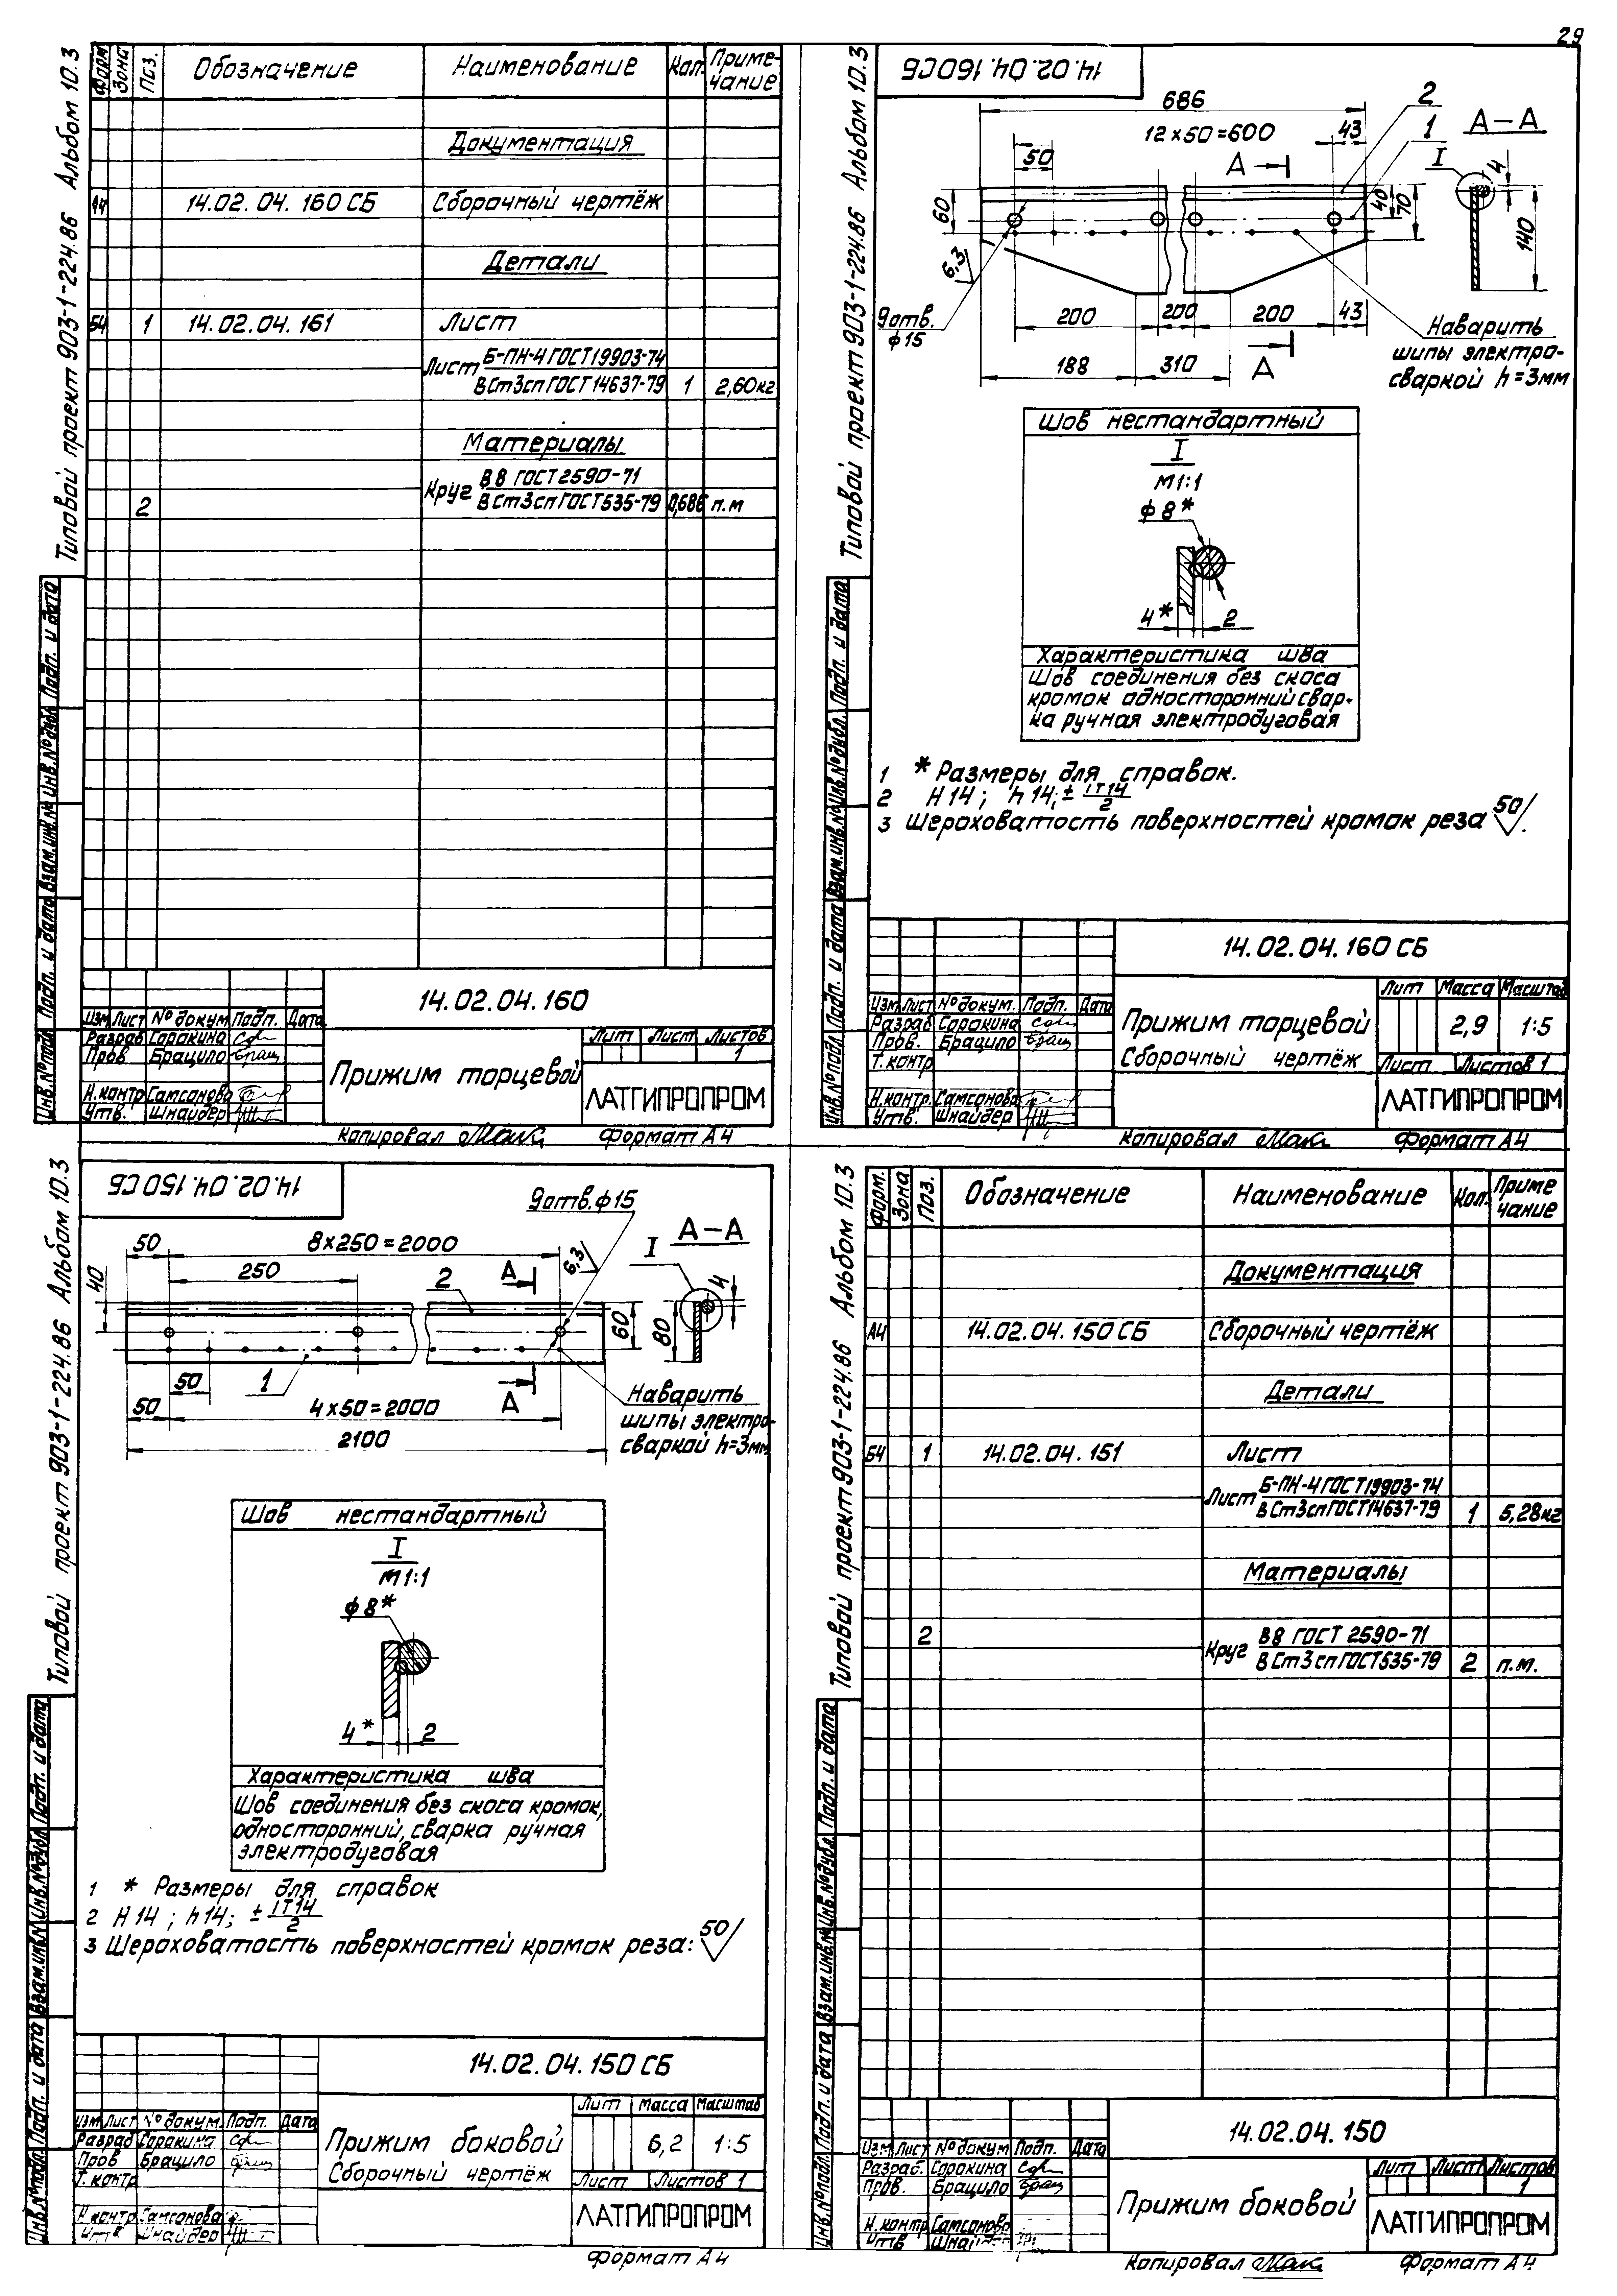 29
Типовой проект 903-1-224.86 Альбом 10.3
Форм Зона Поз. Обозначение Наименование Кол. Приме-чание
Документация
А4 14.02.04.160 СБ Сборочный чертёж
Детали
Б4 1 14.02.04.161 Лист
Лист Б-ПН-4 ГОСТ 19903-74
ВСт3сп ГОСТ 14637-79 1 2,60кг
Материалы
Круг В8 ГОСТ 2590-71
2 ВСт3сп ГОСТ 535-79 0,686 п.м
Инв.№подл. Подп. и дата Взам.инв.№ Инв.№дубл. Подп. и дата
14.02.04.160
Изм Лист №докум. Подп. Дата
Разраб Сорокина
Пров Брацило
Н.контр Самсонова
Утв. Шнайдер
Прижим торцевой
Лит Лист Листов
1
ЛАТГИПРОПРОМ
Копировал Формат А4
Типовой проект 903-1-224.86 Альбом 10.3
14.02.04.160СБ
686
12×50=600 43
50
А
2
1
А-А
I
4
60
40
70
140
6,3
9отв.
ф15
200 200 200 43
188 310 А
Наварить
шипы электро-
сваркой h=3мм
Шов нестандартный
I
М1:1
ф8*
4* 2
Характеристика шва
Шов соединения без скоса
кромок односторонний свар-
ка ручная электродуговая
1 * Размеры для справок.
2 Н14; h14; ± IT14/2
3 Шероховатость поверхностей кромок реза 50.
Инв.№подл. Подп. и дата Взам.инв.№ Инв.№дубл. Подп. и дата
14.02.04.160 СБ
Изм Лист №докум. Подп. Дата
Разраб Сорокина
Пров. Брацило
Т.контр
Н.контр. Самсонова
Утв. Шнайдер
Прижим торцевой
Сборочный чертёж
Лит Масса Масштаб
2,9 1:5
Лист Листов 1
ЛАТГИПРОПРОМ
Копировал Формат А4
Типовой проект 903-1-224.86 Альбом 10.3
14.02.04.150СБ
9отв.ф15
50 8×250=2000
250
40
2
А
6,3
I
А-А
4
60
80
1
50
50 4×50=2000
А
2100
Наварить
шипы электро-
сваркой h=3мм
Шов нестандартный
I
М1:1
ф8*
4* 2
Характеристика шва
Шов соединения без скоса кромок,
односторонний, сварка ручная
электродуговая
1 * Размеры для справок
2 Н14; h14; ± IT14/2
3 Шероховатость поверхностей кромок реза: 50
Инв.№подл. Подп. и дата Взам.инв.№ Инв.№дубл. Подп. и дата
14.02.04.150 СБ
Изм Лист №докум. Подп. Дата
Разраб Сорокина
Пров Брацило
Т.контр
Н.контр Самсонова
Утв Шнайдер
Прижим боковой
Сборочный чертёж
Лит Масса Масштаб
6,2 1:5
Лист Листов 1
ЛАТГИПРОПРОМ
Формат А4
Типовой проект 903-1-224.86 Альбом 10.3
Форм. Зона Поз. Обозначение Наименование Кол. Приме чание
Документация
А4 14.02.04.150 СБ Сборочный чертёж
Детали
Б4 1 14.02.04.151 Лист
Лист Б-ПН-4 ГОСТ 19903-74
ВСт3сп ГОСТ 14637-79 1 5,28кг
Материалы
2 Круг В8 ГОСТ 2590-71
ВСт3сп ГОСТ 535-79 2 п.м.
Инв.№подл. Подп. и дата Взам.инв.№ Инв.№дубл. Подп. и дата
14.02.04.150
Изм Лист №докум Подп. Дата
Разраб. Сорокина
Пров. Брацило
Н.контр Самсонова
Утв
Прижим боковой
Лит Лист Листов
1
ЛАТГИПРОПРОМ
Копировал Формат А4